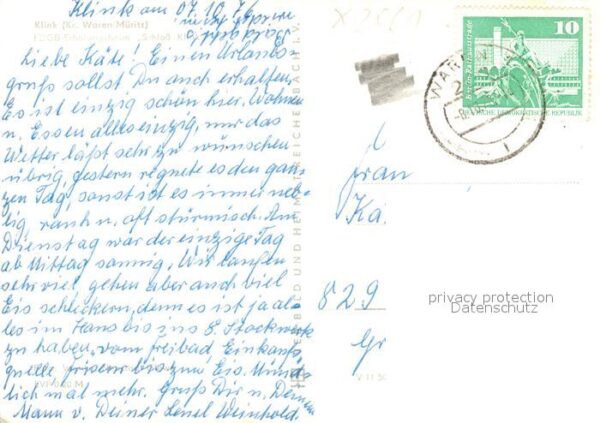 Klink am 07.10.76
Klink (Kr. Waren/Müritz)
FDGB-Erholungsheim "Schloß Klink"
Liebe Käte! Einen Urlaubs-
gruß sollst Du auch erhalten.
Es ist einzig schön hier. Wohnen
u. Essen alles einzig, nur das
Wetter läßt sehr zu wünschen
übrig, gestern regnete es den gan-
zen Tag, sonst ist es immer neb-
lig, rauh u. oft stürmisch. Am
Dienstag war der einzige Tag
ab Mittag sonnig. Wir laufen
sehr viel, gehen aber auch viel
Eis schleckern, denn es ist ja al-
les im Haus bis ins 8. Stockwerk
zu haben, vom Freibad Einkaufs-
quelle Friseur bis zum Eis. Münd-
lich mal mehr. Gruß Dir u. Deinem
Mann v. Deiner Lenel Weinhold.
10
Berlin, Rathausstraße
DEUTSCHE DEMOKRATISCHE REPUBLIK
WAREN
Frau
Kä.
829
Gr
privacy protection
Datenschutz
BILD UND HEIMAT REICHENBACH I. V.